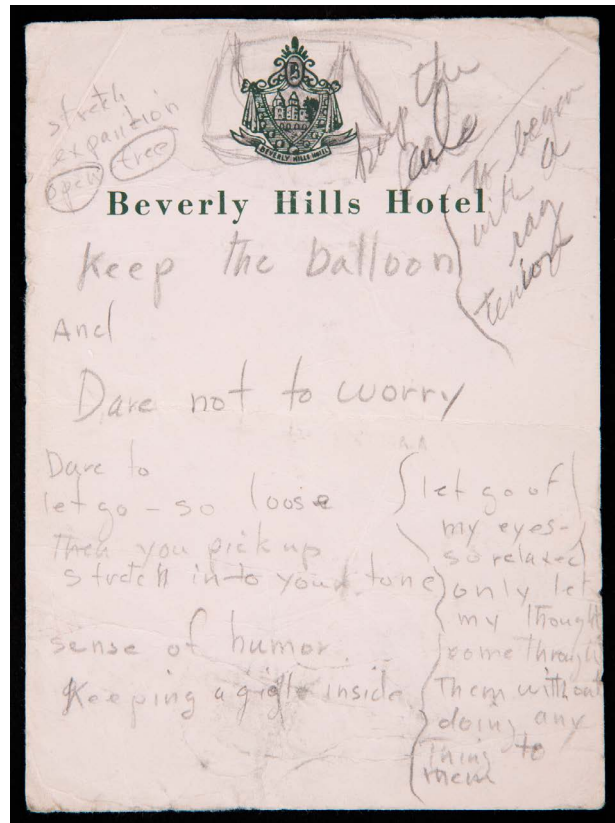 stretch
expantion
open free
BEVERLY HILLS HOTEL
Beverly Hills Hotel
keep the
to begin
with a
tention
Keep the balloon
And
Dare not to worry
Dare to
let go - so loose
Then you pick up
stretch into your tone
sense of humor
Keeping a giggle inside
let go of
my eyes-
so relaxed
only let
my thought
come through
Them without
doing any
Thing to
them